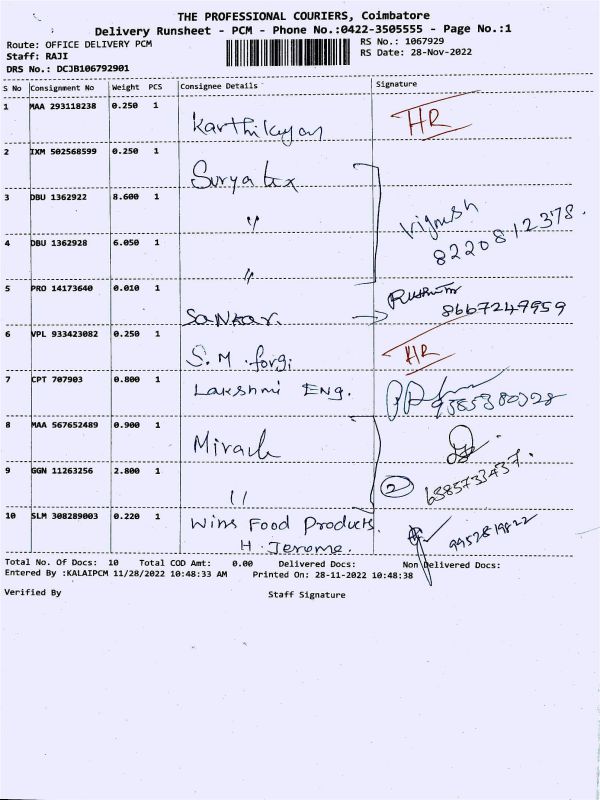 THE PROFESSIONAL COURIERS, Coimbatore
Delivery Runsheet - PCM - Phone No.:0422-3505555 - Page No.:1
Route: OFFICE DELIVERY PCM
RS No.: 1067929
Staff: RAJI
RS Date: 28-Nov-2022
DRS No.: DCJB106792901
S No Consignment No Weight PCS Consignee Details Signature
1 MAA 293118238 0.250 1 Karthikeyan HR
2 IXM 502568599 0.250 1 Surya tex
3 DBU 1362922 8.600 1 " Vignesh
8220812378.
4 DBU 1362928 6.050 1 "
5 PRO 14173640 0.010 1 Sankar. 8667249959
6 VPL 933423082 0.250 1 S.M. forgi HR
7 CPT 707903 0.800 1 Lakshmi Eng.
8 MAA 567652489 0.900 1
9 GGN 11263256 2.800 1 " 2
10 SLM 308289003 0.220 1 Wins Food Products.
H. Jerome.
Total No. Of Docs: 10 Total COD Amt: 0.00 Delivered Docs: Non Delivered Docs:
Entered By :KALAIPCM 11/28/2022 10:48:33 AM Printed On: 28-11-2022 10:48:38
Verified By Staff Signature